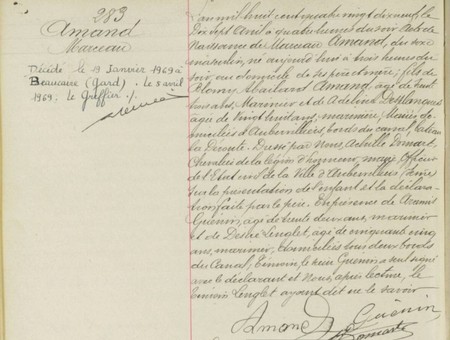 283
Amand
Marceau
Décédé le 9 Janvier 1969 à
Beaucaire (Gard). le 3 avril
1969. Le Greffier ./.
L'an mil huit cent quatre vingt dix neuf, le
Dix sept Avril à quatre heures du soir Acte de
Naissance de Marceau Amand, du sexe
masculin, né aujourd'hui à trois heures du
soir, au domicile de ses père et mère; fils de
Amand, âgé de vingt
huit ans, Marinier et de Adeline Deslanques
âgée de vingt huit ans, marinière, Mariés do-
miciliés à Aubervilliers, bords du canal, bateau
la Décidée. Dressé par Nous, Achille Domart
Chevalier de la légion d'honneur, maire, Officier
de l'Etat civil de la Ville d'Aubervilliers (Seine)
sur la présentation de l'enfant et la déclara-
tion faite par le père. En présence de
Guénin, âgé de trente deux ans, marinier
et de Désiré Lenglet, âgé de cinquante cinq
ans, marinier, domiciliés tous deux bords
du Canal, témoins, le sieur Guénin a seul signé
avec le déclarant et Nous, après lecture, le
témoin Lenglet ayant dit ne le savoir
Amand
Guénin
Domart